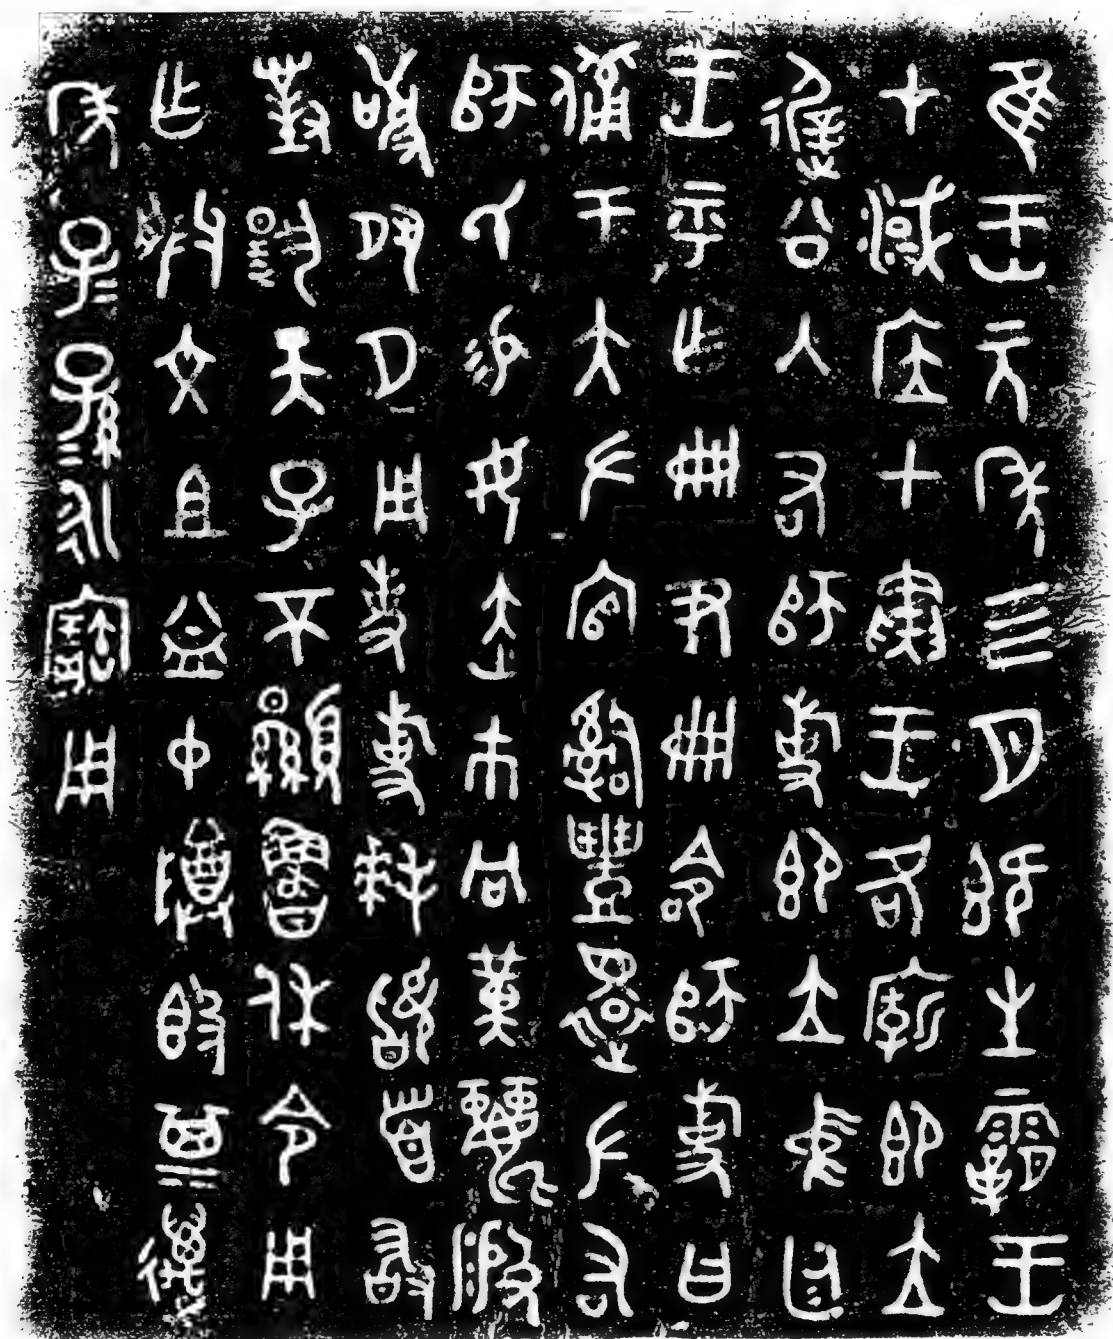 隹王元年四月既生霸王
才淢应甲寅王各廟即立
遟公入右師旋即立中廷
王乎乍册尹册令師旋曰
備于大ナ官𤔲豐還ナ又
師氏易女赤市冋黃麗般
敬夙夕用事旋拜𩒨首敢
對揚天子不顯魯休令用
乍朕文且益中尊𣪘其邁
年子=孫=永寶用